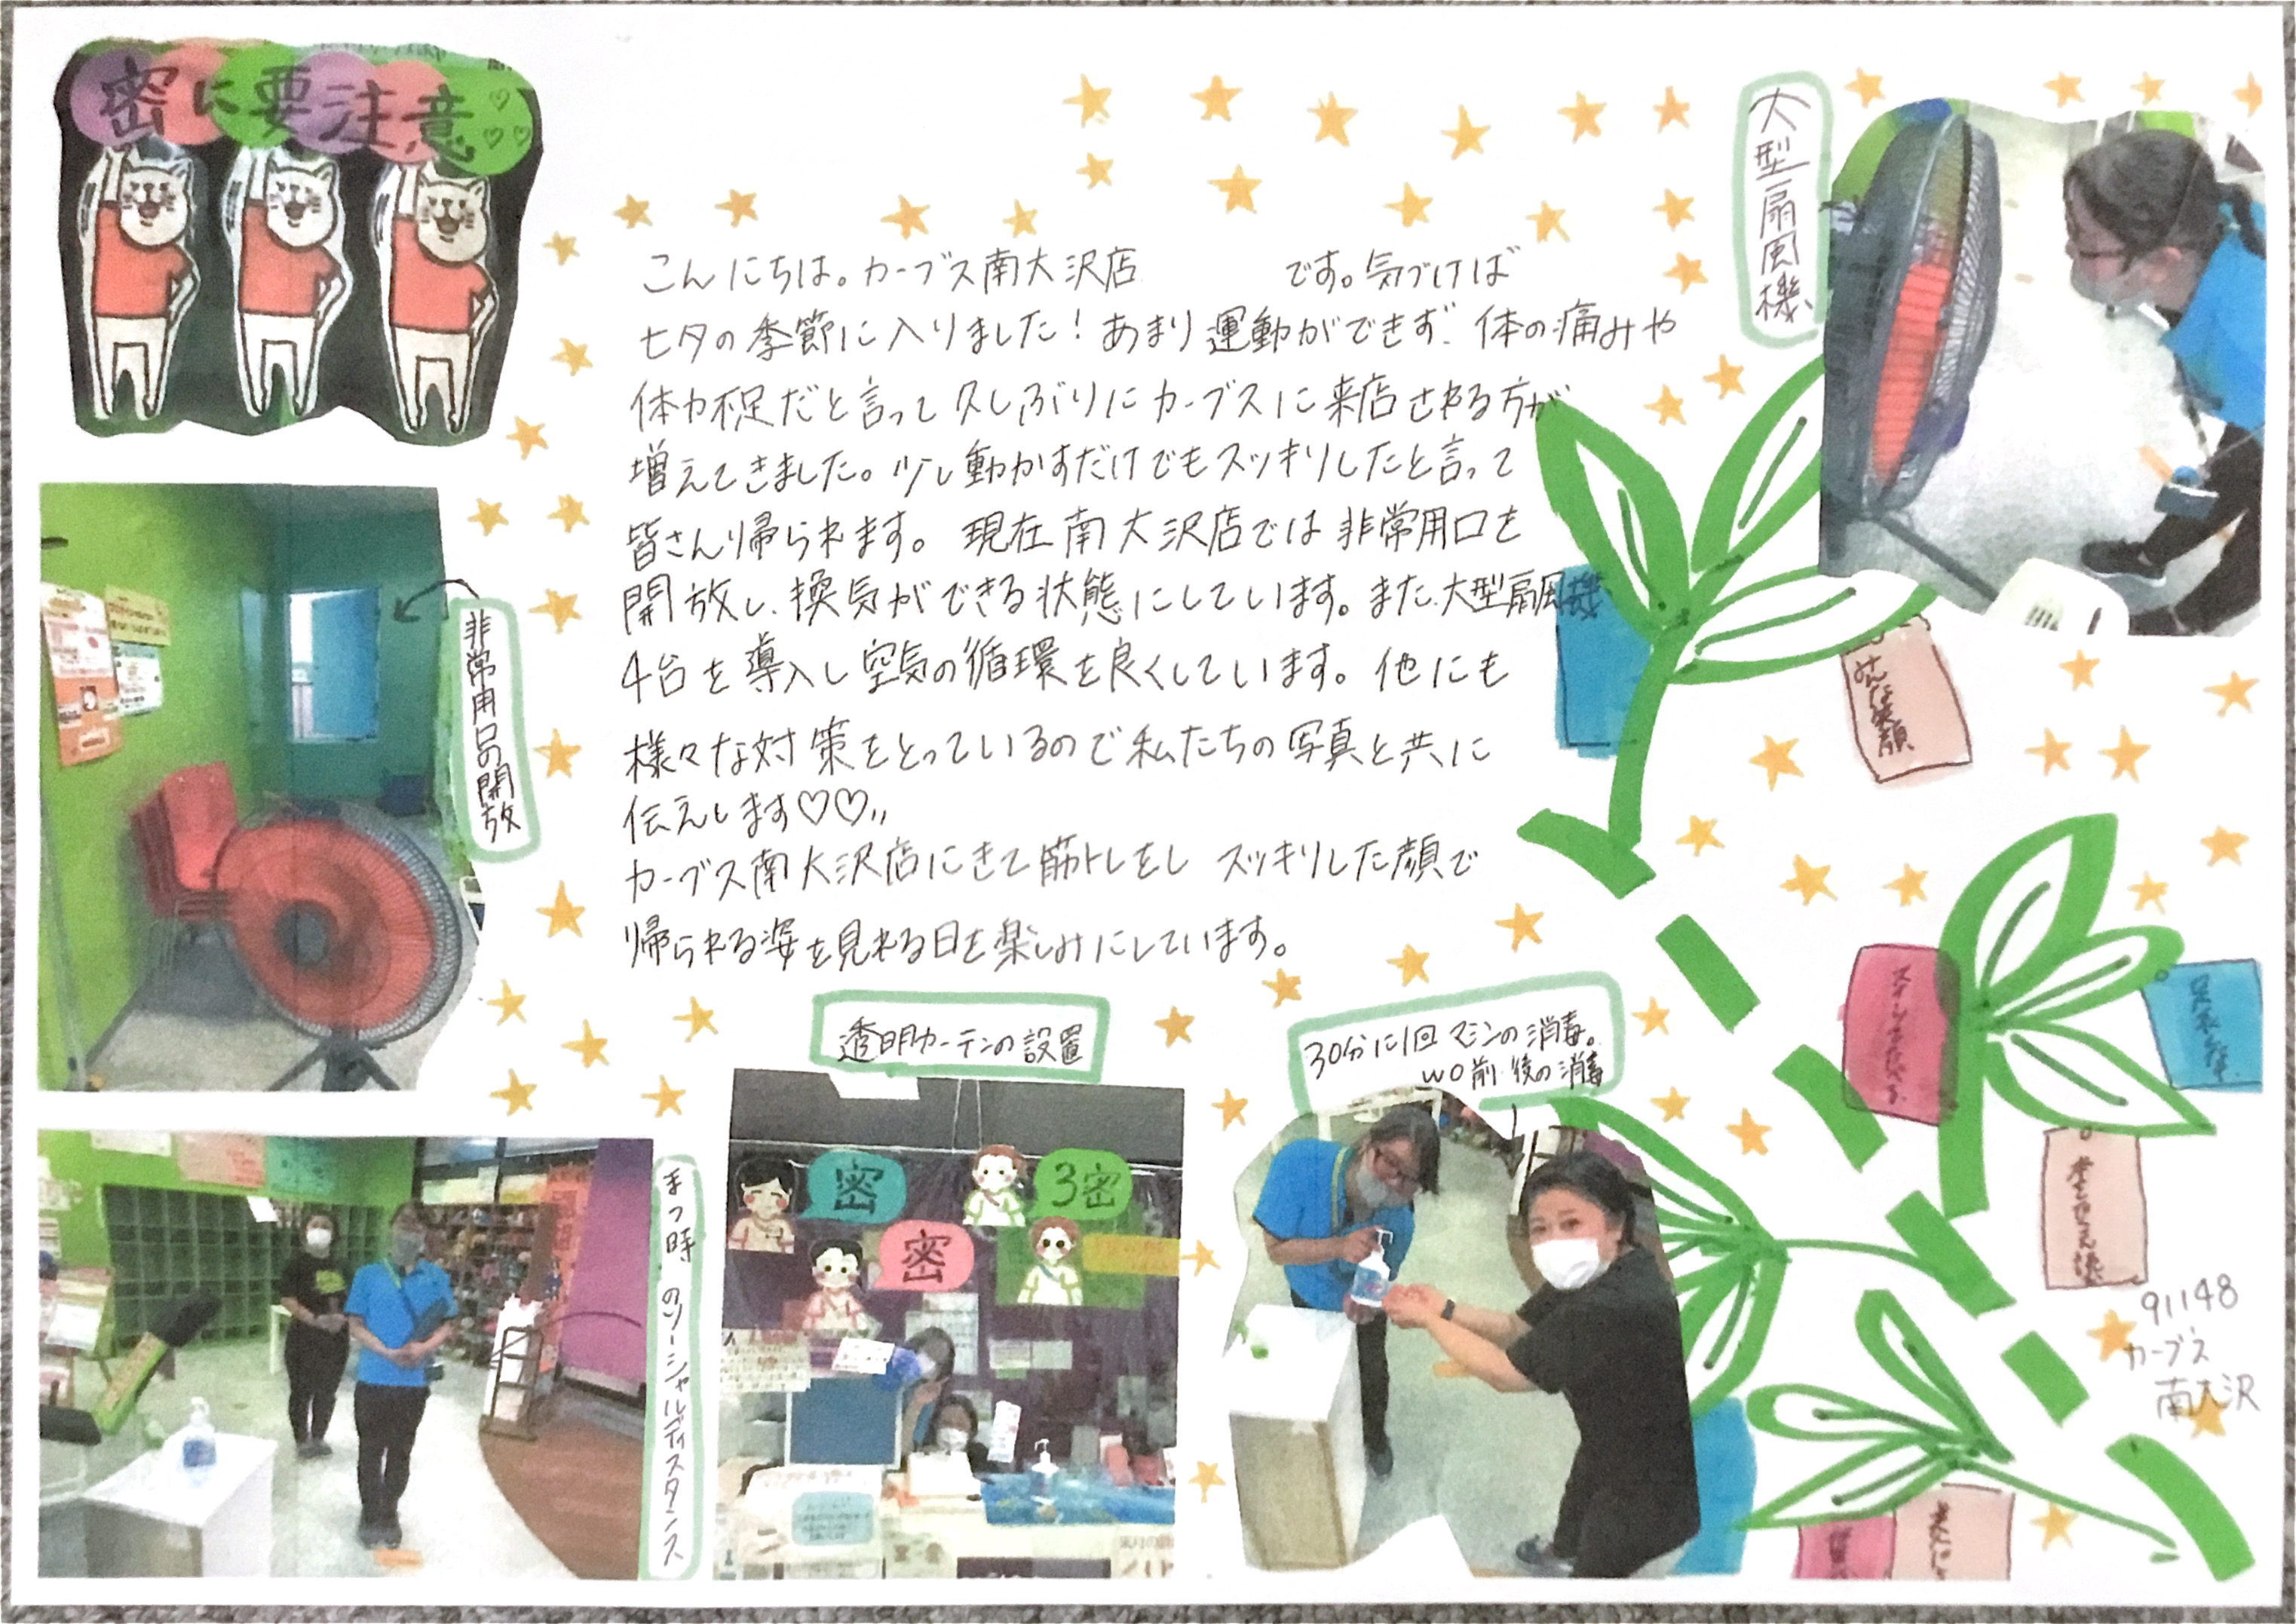 密に要注意♡♡♡
大型扇風機
こんにちは。カーブス南大沢店 です。気づけば
七夕の季節に入りました！あまり運動ができず、体の痛みや
体力不足だと言って久しぶりにカーブスに来店される方が
増えてきました。少し動かすだけでもスッキリしたと言って
皆さん帰られます。 現在南大沢店では非常用口を
開放し、換気ができる状態にしています。また、大型扇風機
4台を導入し空気の循環を良くしています。他にも
様々な対策をとっているので私たちの写真と共に
伝えします♡♡〃
カーブス南大沢店にきて筋トレをし スッキリした顔で
帰られる姿を見れる日を楽しみにしています。
非常用口の開放
みんな笑顔
透明カーテンの設置
30分に1回マシンの消毒。
WO前・後の消毒
まつ時のソーシャルディスタンス
密
3密
密
91148
カーブス
南大沢